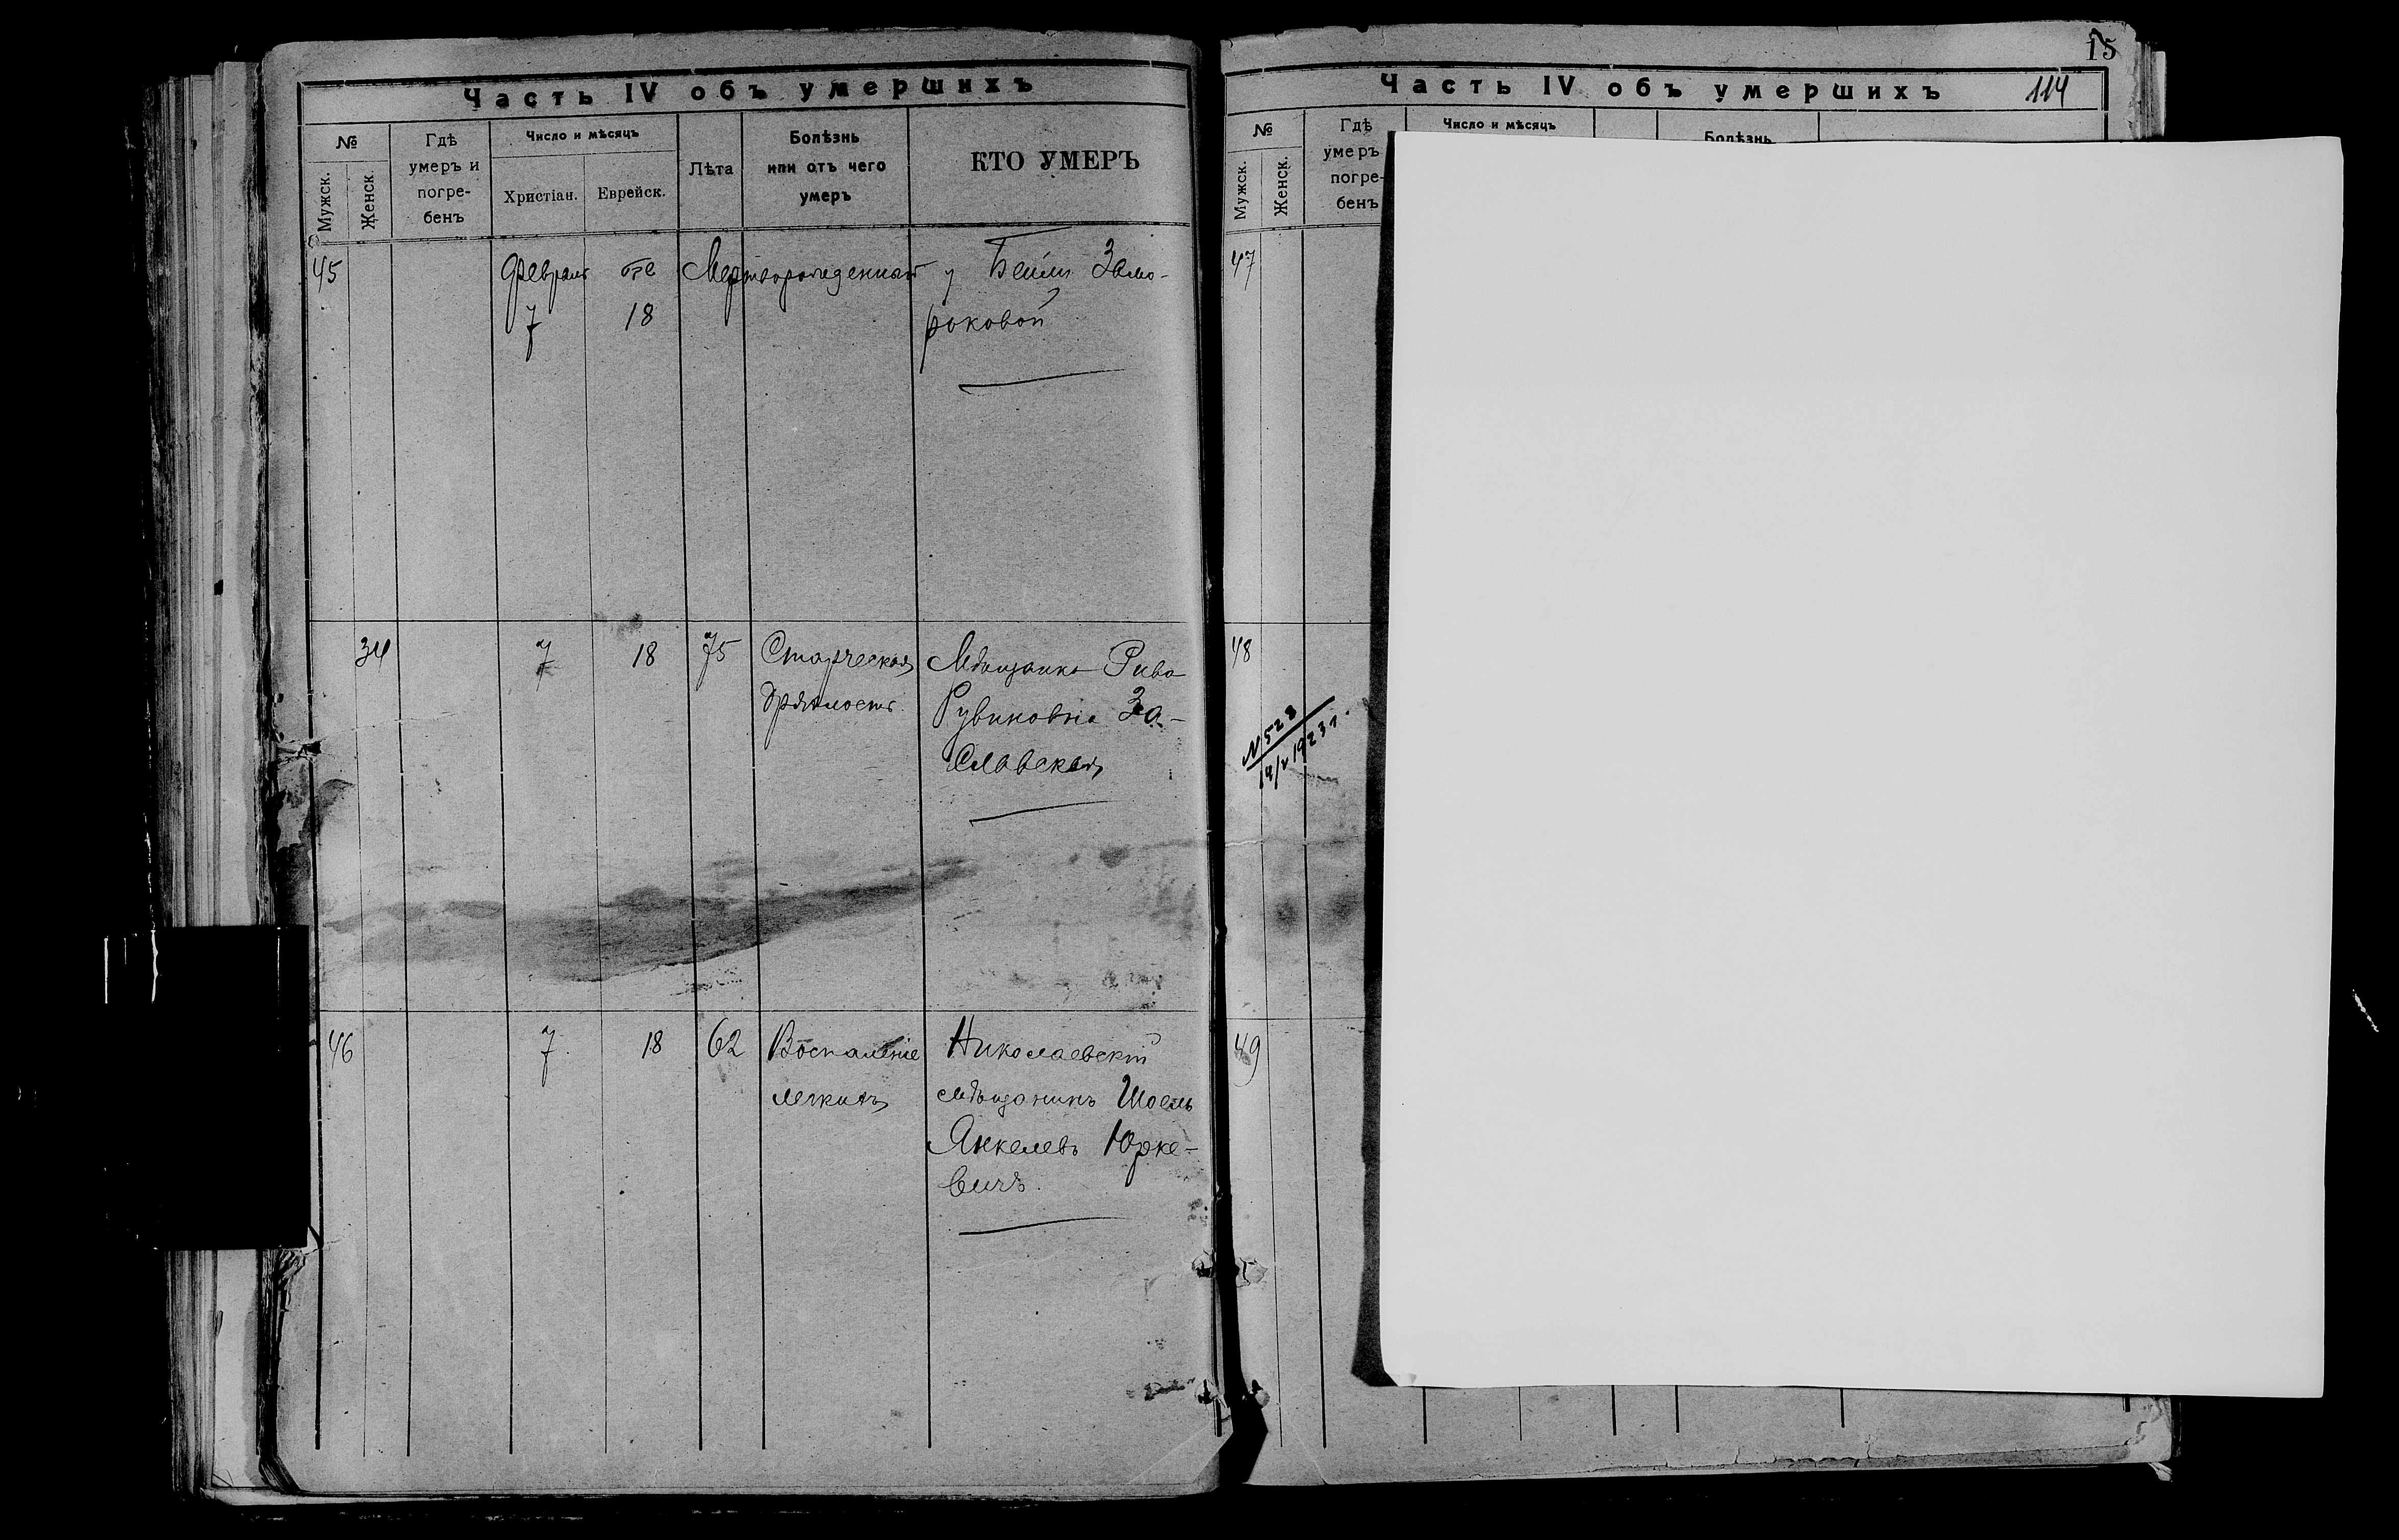 Часть IV объ умершихъ
№
Мужск.
Женск.
Гдѣ
умеръ и
погре-
бенъ
Число и мѣсяцъ
Христіан.
Еврейск.
Лѣта
Болѣзнь
или отъ чего
умеръ
КТО УМЕРЪ
45
Февраля
7
18
Мертворожденный
у Бейли
роковой
34
7
18
75
Старческая
дряхлость.
Мѣщанка Рива
Рувиновна За-
славская
46
7
18
62
Воспаленіе
легкихъ
Николаевскій
мѣщанинъ Шоель
Янкелевъ Юрке-
вичъ.
15
Часть IV объ умершихъ
114
№
Мужск.
Женск.
Гдѣ
умеръ
погре-
бенъ
Число и мѣсяцъ
Болѣзнь
47
48
N 528
14/V 1923 г.
49